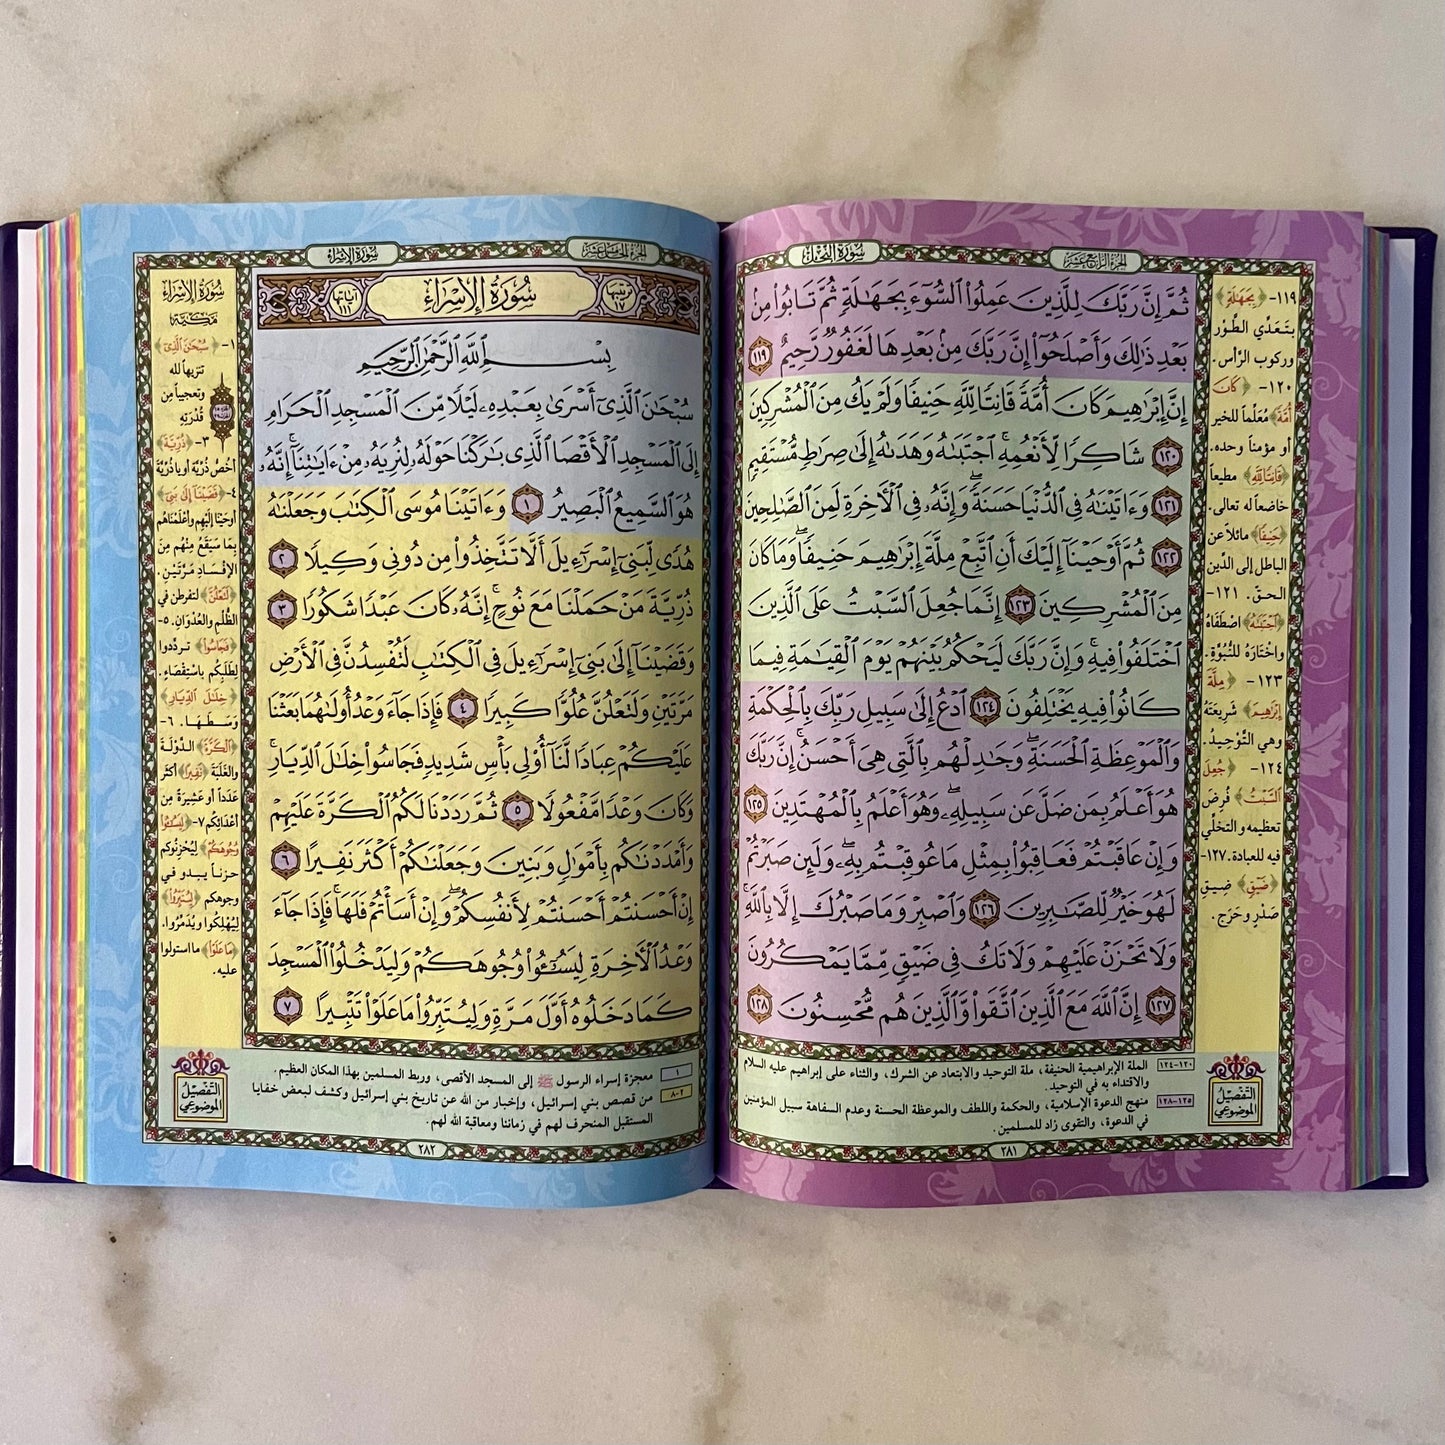 سورة النحل
الجزء الرابع عشر
ثُمَّ إِنَّ رَبَّكَ لِلَّذِينَ عَمِلُوا۟ ٱلسُّوٓءَ بِجَهَـٰلَةٍۢ ثُمَّ تَابُوا۟ مِنۢ
بَعْدِ ذَٰلِكَ وَأَصْلَحُوٓا۟ إِنَّ رَبَّكَ مِنۢ بَعْدِهَا لَغَفُورٌۭ رَّحِيمٌ ١١٩
إِنَّ إِبْرَٰهِيمَ كَانَ أُمَّةًۭ قَانِتًۭا لِّلَّهِ حَنِيفًۭا وَلَمْ يَكُ مِنَ ٱلْمُشْرِكِينَ
١٢٠ شَاكِرًۭا لِّأَنْعُمِهِ ۚ ٱجْتَبَىٰهُ وَهَدَىٰهُ إِلَىٰ صِرَٰطٍۢ مُّسْتَقِيمٍۢ
١٢١ وَءَاتَيْنَـٰهُ فِى ٱلدُّنْيَا حَسَنَةًۭ ۖ وَإِنَّهُۥ فِى ٱلْـَٔاخِرَةِ لَمِنَ ٱلصَّـٰلِحِينَ
١٢٢ ثُمَّ أَوْحَيْنَآ إِلَيْكَ أَنِ ٱتَّبِعْ مِلَّةَ إِبْرَٰهِيمَ حَنِيفًۭا ۖ وَمَا كَانَ
مِنَ ٱلْمُشْرِكِينَ ١٢٣ إِنَّمَا جُعِلَ ٱلسَّبْتُ عَلَى ٱلَّذِينَ
ٱخْتَلَفُوا۟ فِيهِ ۚ وَإِنَّ رَبَّكَ لَيَحْكُمُ بَيْنَهُمْ يَوْمَ ٱلْقِيَـٰمَةِ فِيمَا
كَانُوا۟ فِيهِ يَخْتَلِفُونَ ١٢٤ ٱدْعُ إِلَىٰ سَبِيلِ رَبِّكَ بِٱلْحِكْمَةِ
وَٱلْمَوْعِظَةِ ٱلْحَسَنَةِ ۖ وَجَـٰدِلْهُم بِٱلَّتِى هِىَ أَحْسَنُ ۚ إِنَّ رَبَّكَ
هُوَ أَعْلَمُ بِمَن ضَلَّ عَن سَبِيلِهِۦ ۖ وَهُوَ أَعْلَمُ بِٱلْمُهْتَدِينَ ١٢٥
وَإِنْ عَاقَبْتُمْ فَعَاقِبُوا۟ بِمِثْلِ مَا عُوقِبْتُم بِهِۦ ۖ وَلَئِن صَبَرْتُمْ
لَهُوَ خَيْرٌۭ لِّلصَّـٰبِرِينَ ١٢٦ وَٱصْبِرْ وَمَا صَبْرُكَ إِلَّا بِٱللَّهِ ۚ
وَلَا تَحْزَنْ عَلَيْهِمْ وَلَا تَكُ فِى ضَيْقٍۢ مِّمَّا يَمْكُرُونَ
١٢٧ إِنَّ ٱللَّهَ مَعَ ٱلَّذِينَ ٱتَّقَوا۟ وَّٱلَّذِينَ هُم مُّحْسِنُونَ ١٢٨
١١٩- ﴿بِجَهَـٰلَةٍ﴾
بتعدِّي الطَّوْر
وركوب الرَّأس.
١٢٠- ﴿كَانَ
أُمَّةً﴾ مُعَلِّماً للخير
أو مؤمناً وحده.
﴿قَانِتًا لِّلَّهِ﴾ مطيعاً
خاضعاً له تعالى.
﴿حَنِيفًا﴾ مائلاً عن
الباطل إلى الدِّين
الحقّ. ١٢١-
﴿ٱجْتَبَىٰهُ﴾ اصْطَفَاهُ
واخْتَارَهُ للنُّبُوَّةِ.
١٢٣- ﴿مِلَّةَ
إِبْرَٰهِيمَ﴾ شريعَتَهُ
وهي التَّوْحِيدُ.
١٢٤- ﴿جُعِلَ
ٱلسَّبْتُ﴾ فُرِضَ
تعظيمه والتخلِّي
فيه للعبادة. ١٢٧-
﴿ضَيْقٍ﴾ ضِيقِ
صَدْرٍ وحَرَج.
التفصيل
الموضوعي
١٢٠-١٢٤ الملة الإبراهيمية الحنيفة، ملة التوحيد والابتعاد عن الشرك، والثناء على إبراهيم عليه السلام
والاقتداء به في التوحيد.
١٢٥-١٢٨ منهج الدعوة الإسلامية، والحكمة واللطف والموعظة الحسنة وعدم السفاهة سبيل المؤمنين
في الدعوة، والتقوى زاد للمسلمين.
٢٨١
الجزء الخامس عشر
سورة الإسراء
ترتيبها ١٧
سُورَةُ الإِسْرَاءِ
آياتها ١١١
بِسْمِ ٱللَّهِ ٱلرَّحْمَـٰنِ ٱلرَّحِيمِ
سُبْحَـٰنَ ٱلَّذِىٓ أَسْرَىٰ بِعَبْدِهِۦ لَيْلًۭا مِّنَ ٱلْمَسْجِدِ ٱلْحَرَامِ
إِلَى ٱلْمَسْجِدِ ٱلْأَقْصَا ٱلَّذِى بَـٰرَكْنَا حَوْلَهُۥ لِنُرِيَهُۥ مِنْ ءَايَـٰتِنَآ ۚ إِنَّهُۥ
هُوَ ٱلسَّمِيعُ ٱلْبَصِيرُ ١ وَءَاتَيْنَا مُوسَى ٱلْكِتَـٰبَ وَجَعَلْنَـٰهُ
هُدًۭى لِّبَنِىٓ إِسْرَٰٓءِيلَ أَلَّا تَتَّخِذُوا۟ مِن دُونِى وَكِيلًۭا ٢
ذُرِّيَّةَ مَنْ حَمَلْنَا مَعَ نُوحٍ ۚ إِنَّهُۥ كَانَ عَبْدًۭا شَكُورًۭا ٣
وَقَضَيْنَآ إِلَىٰ بَنِىٓ إِسْرَٰٓءِيلَ فِى ٱلْكِتَـٰبِ لَتُفْسِدُنَّ فِى ٱلْأَرْضِ
مَرَّتَيْنِ وَلَتَعْلُنَّ عُلُوًّۭا كَبِيرًۭا ٤ فَإِذَا جَآءَ وَعْدُ أُولَىٰهُمَا بَعَثْنَا
عَلَيْكُمْ عِبَادًۭا لَّنَآ أُو۟لِى بَأْسٍۢ شَدِيدٍۢ فَجَاسُوا۟ خِلَـٰلَ ٱلدِّيَارِ ۚ
وَكَانَ وَعْدًۭا مَّفْعُولًۭا ٥ ثُمَّ رَدَدْنَا لَكُمُ ٱلْكَرَّةَ عَلَيْهِمْ
وَأَمْدَدْنَـٰكُم بِأَمْوَٰلٍۢ وَبَنِينَ وَجَعَلْنَـٰكُمْ أَكْثَرَ نَفِيرًا ٦
إِنْ أَحْسَنتُمْ أَحْسَنتُمْ لِأَنفُسِكُمْ ۖ وَإِنْ أَسَأْتُمْ فَلَهَا ۚ فَإِذَا جَآءَ
وَعْدُ ٱلْـَٔاخِرَةِ لِيَسُـۥٓـُٔوا۟ وُجُوهَكُمْ وَلِيَدْخُلُوا۟ ٱلْمَسْجِدَ
كَمَا دَخَلُوهُ أَوَّلَ مَرَّةٍۢ وَلِيُتَبِّرُوا۟ مَا عَلَوْا۟ تَتْبِيرًا ٧
سُورَةُ الإِسْرَاءِ
مَكِّيَّة
١- ﴿سُبْحَـٰنَ ٱلَّذِى﴾
تنزيهاً لله
وتعجيباً مِن
قُدْرَتِهِ
٣- ﴿ذُرِّيَّةَ﴾
أخُصُّ ذُرِّيَّةَ أو يا ذُرِّيَّةَ
٤- ﴿قَضَيْنَآ إِلَىٰ بَنِىٓ﴾
أوحَيْنا إليْهم وأعْلمْناهم
بِما سَيَقَعُ مِنْهم مِن
الإفْسادِ مَرَّتين.
﴿لَتَعْلُنَّ﴾ لتفرطن في
الظُّلْمِ والعُدْوَانِ. ٥-
﴿فَجَاسُوا۟﴾ تردَّدوا
لِطلَبِكُم باسْتِقصَاءٍ.
﴿خِلَـٰلَ ٱلدِّيَارِ﴾
وسَطَها. ٦-
﴿ٱلْكَرَّةَ﴾ الدَّوْلَةَ
والغَلَبَةَ ﴿نَفِيرًا﴾ أكثَر
عَدَداً أو عَشِيرَةً مِن
أعْدَائِكُم ٧- ﴿لِيَسُـُٔوا۟
وُجُوهَكُمْ﴾ لِيُحْزِنُوكم
حزناً يبدو في
وجوهكم ﴿لِيُتَبِّرُوا۟﴾
لِيُهْلِكوا ويُدَمِّرُوا.
﴿مَا عَلَوْا۟﴾ ما استولوا
عليه.
التفصيل
الموضوعي
١ معجزة إسراء الرسول ﷺ إلى المسجد الأقصى، وربط المسلمين بهذا المكان العظيم.
٢-٨ من قصص بني إسرائيل، وإخبار من الله عن تاريخ بني إسرائيل وكشف لبعض خفايا
المستقبل المنحرف لهم في زماننا ومعاقبة الله لهم.
٢٨٢